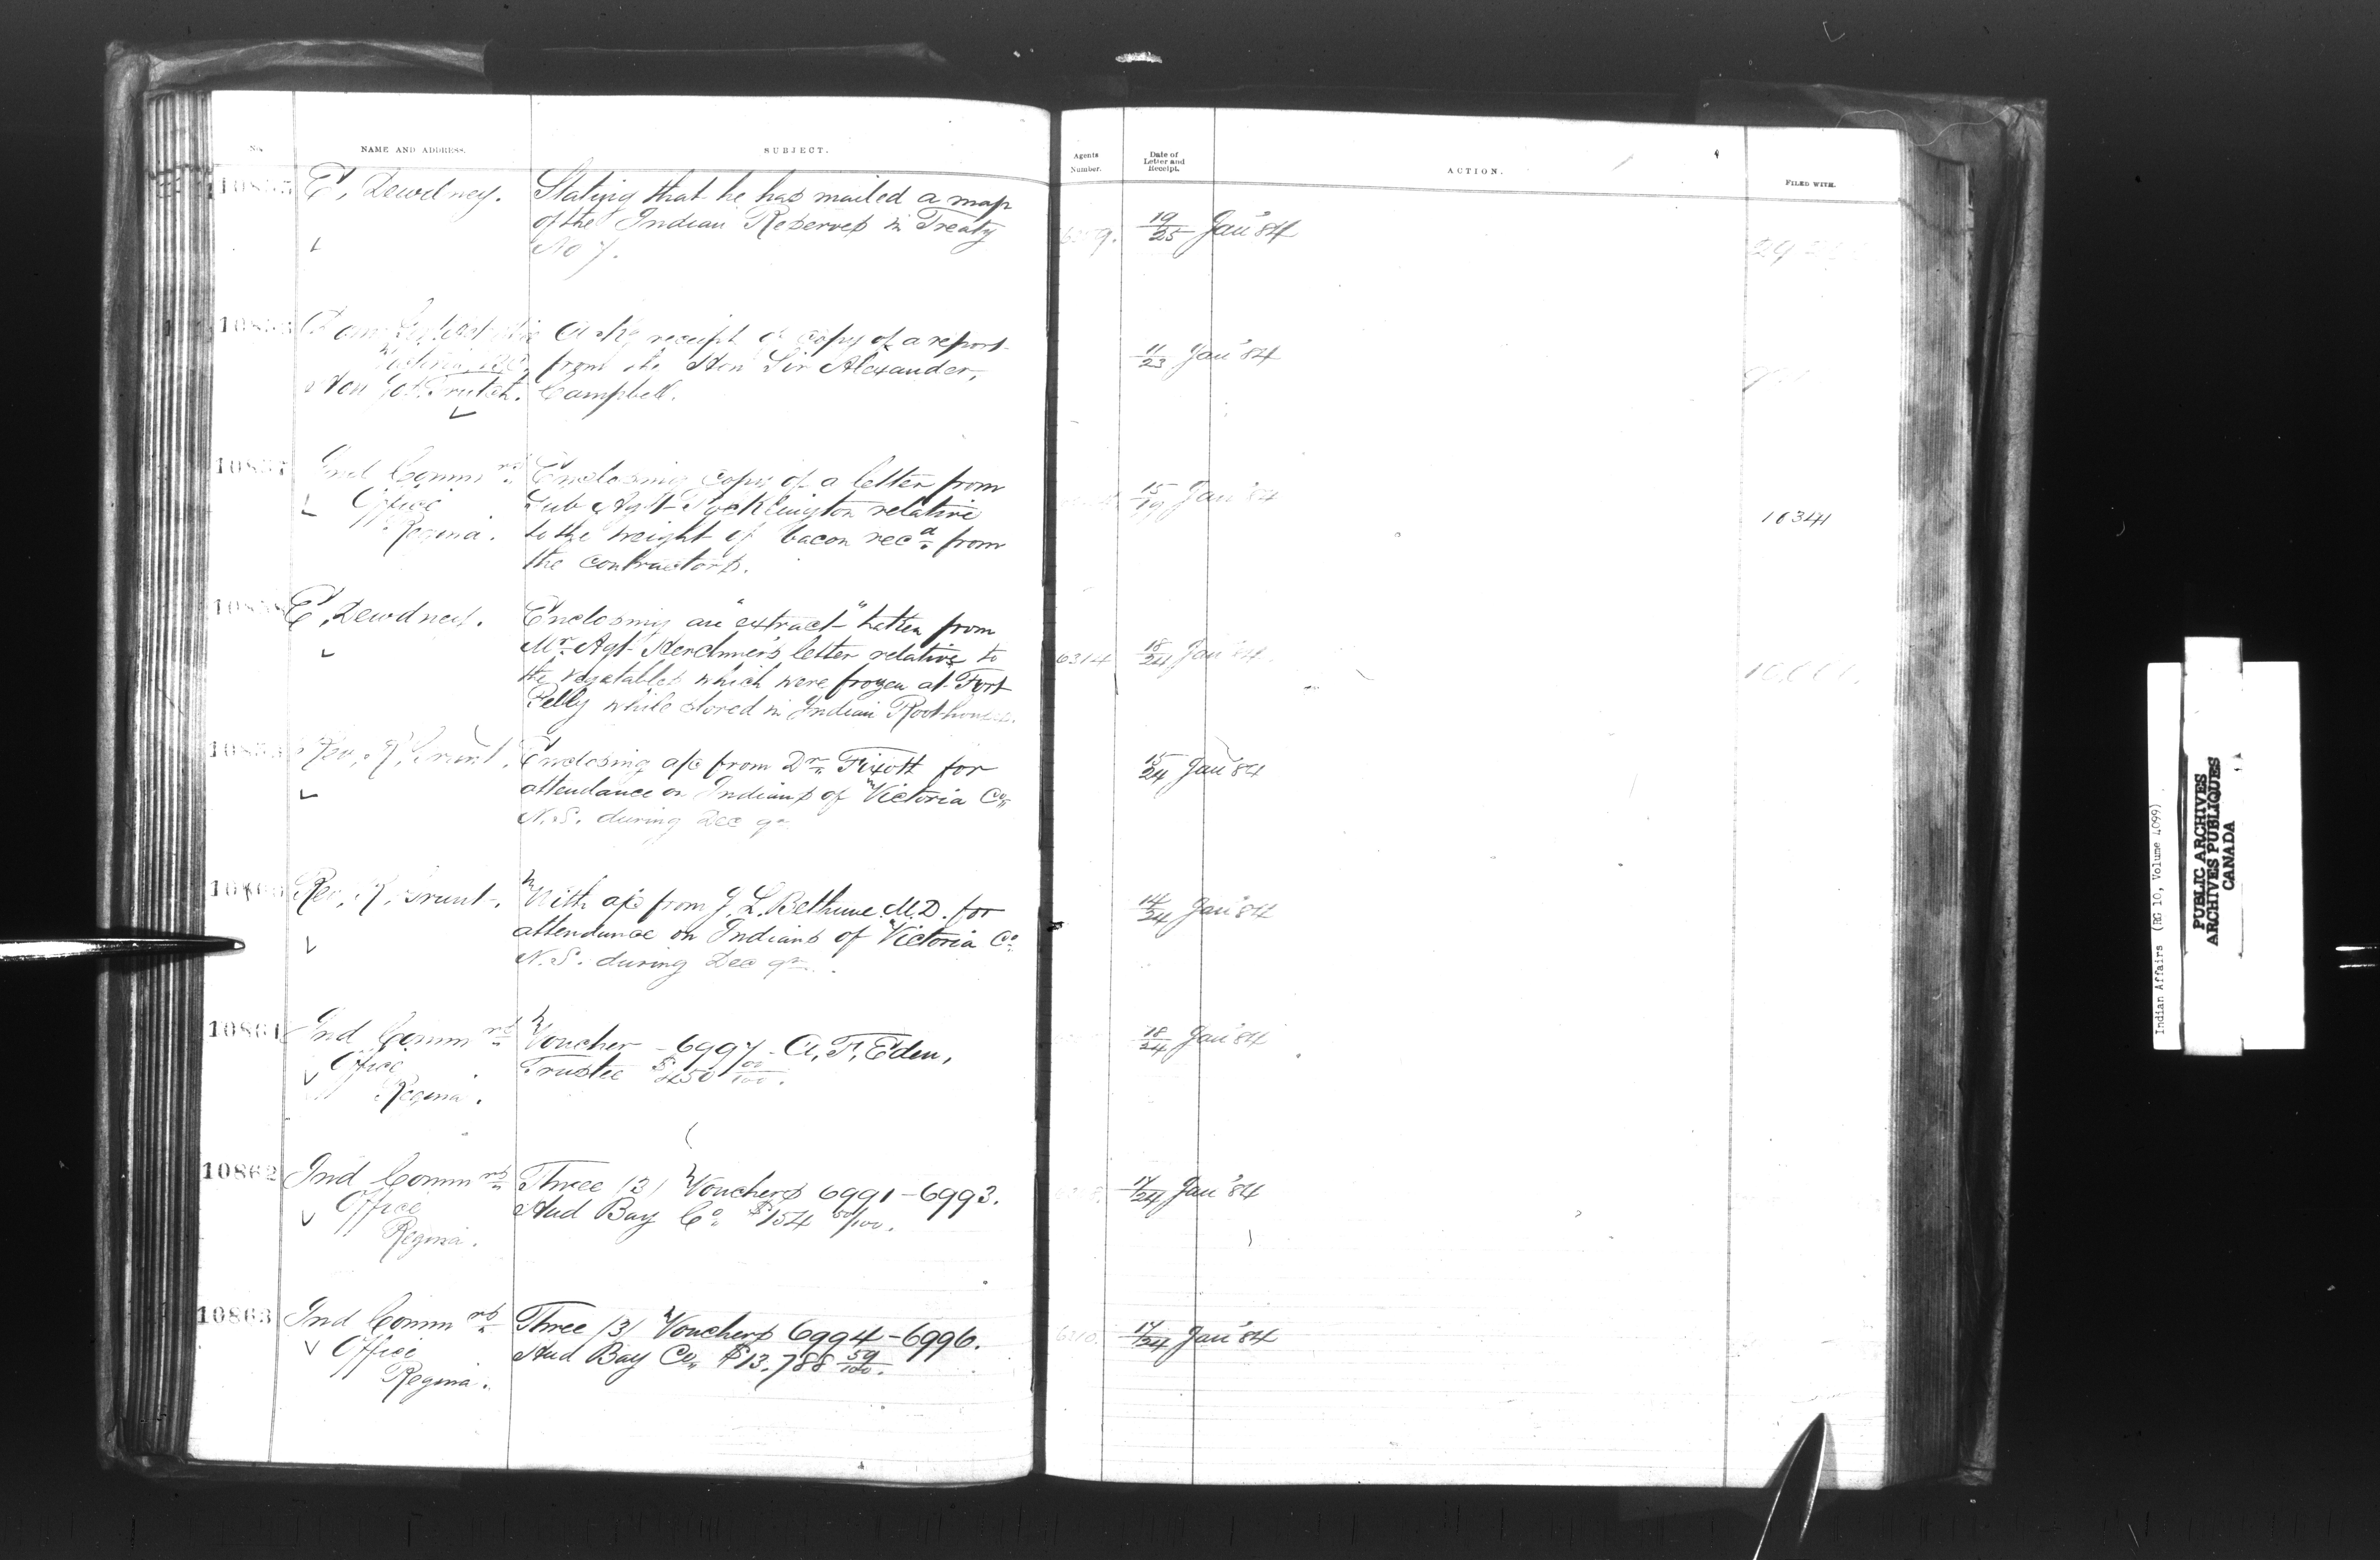 No. NAME AND ADDRESS. SUBJECT.
Agents Number. Date of Letter and Receipt. ACTION. FILED WITH.
10855 E, Dewdney. Stating that he has mailed a map
of the Indian Reserves in Treaty
No 7.
19/25 Jan'84
Ack'g receipt of copy of a report
from the Hon Sir Alexander,
Campbell.
11/23 Jan'84
10857 Ind Commrs Enclosing copy of a letter from
Office Sub Agt Pocklington relative
Regina. to the weight of bacon recd. from
the contractors.
15/19 Jan'84
16344
10858 E, Dewdney. Enclosing an "extract" Letter from
Mr. Agt Herchmer's letter relative to
the vegetables which were frozen at Fort
Pelly while stored in Indian Roothouse.
6314 18/24 Jan'84
10859 Rev, R, Grant. Enclosing a/c from Dr. Fixott for
attendance on Indians of Victoria Co.
N.S. during Dec qr
15/24 Jan'84
10860 Rev, R, Grant. With a/c from J. L. Bethune M.D. for
attendance on Indians of Victoria Co.
N.S. during Dec qr.
14/24 Jan'84
10861 Ind Commrs Voucher 6997 A, F, Eden,
Office Trustee $450 00/100.
Regina.
18/24 Jan'84
10862 Ind Commrs Three (3) Vouchers 6991-6993.
Office Hud Bay Co. $154 50/100.
Regina.
17/24 Jan'84
10863 Ind Commrs Three (3) Vouchers 6994-6996.
Office Hud Bay Co. $13,788 59/100.
Regina.
6310. 17/24 Jan'84
Indian Affairs (RG 10, Volume 4099)
PUBLIC ARCHIVES
ARCHIVES PUBLIQUES
CANADA